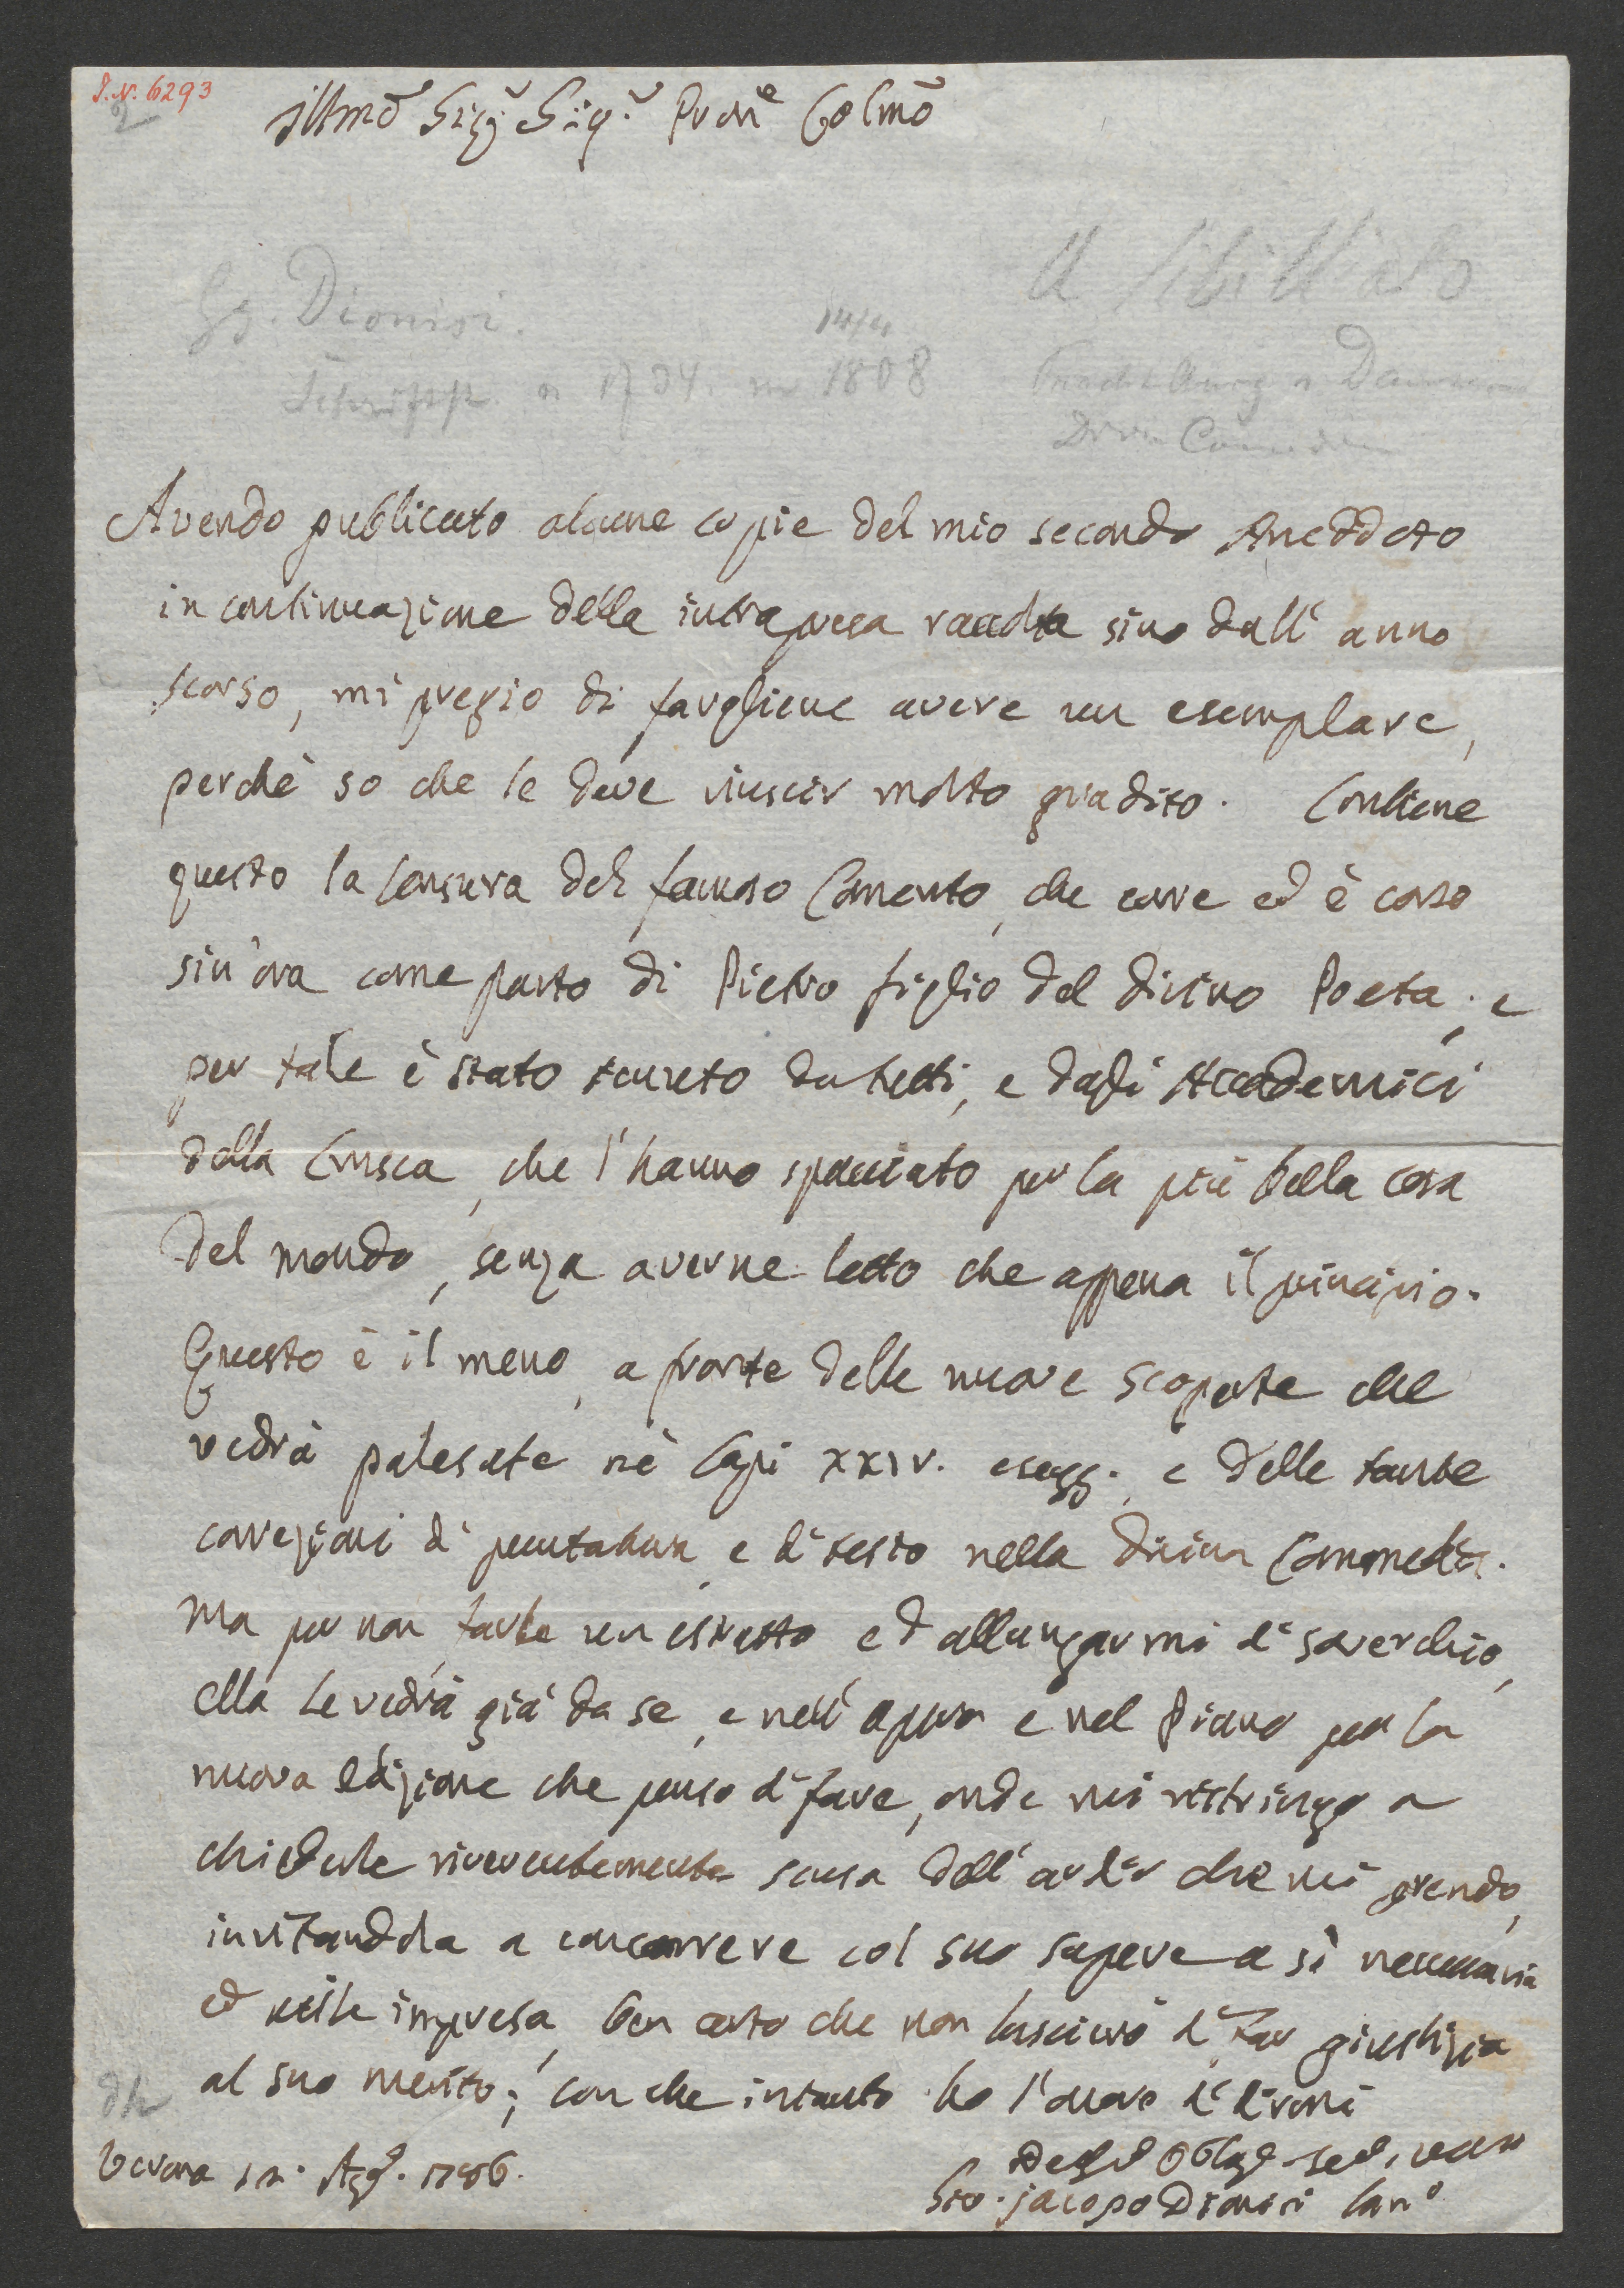 I. N. 6293
2
Illmo Sigr Sigr Pron Colmo
A Sibilliato
Gg. Dionisi.
14/4
1734. 1808
Avendo publicato alcune copie del mio secondo Aneddoto
in continuazione della intrapresa raccolta sino dall' anno
scorso, mi pregio di fargliene avere un esemplare,
perchè so che le deve riuscir molto gradito. Contiene
questo la censura del famoso Comento, che corre ed è corso
sin'ora come parto di Pietro figlio del divino Poeta; e
per tale è stato tenuto da tutti, e dagli Accademici
della Crusca, che l'hanno spacciato per la più bella cosa
del mondo, senza averne letto che appena il principio.
Questo è il meno, a fronte delle nuove scoperte che
vedrà palesate nè Capi XXIV. e segg., e delle tante
correzioni di puntatura, e di testo nella divina Commedia.
Ma per non farle un estratto ed allungarmi di soverchio,
ella le vedrà già da se, e nell' opera e nel Piano per la
nuova edizione che penso di fare, onde mi ristringo a
chiederle riverentemente scusa dell' ardir che mi prendo,
invitandola a concorrere col suo sapere a sì necessaria
ed utile impresa, ben certo che non lascierò di far giustizia
al suo merito; con che intanto ho l'onore di dirmi
Verona 12. Agº. 1786.
Gio. Jacopo Dionisi Canº